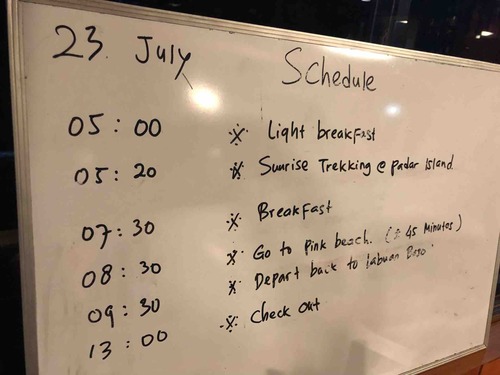 23. July
Schedule
05 : 00 ※ Light breakfast
05 : 20 ※ Sunrise Trekking @ padar Island
07 : 30 ※ Breakfast
08 : 30 ※ Go to Pink beach. (± 45 Minutes)
09 : 30 ※ Depart back to labuan Bajo
13 : 00 ※ Check out